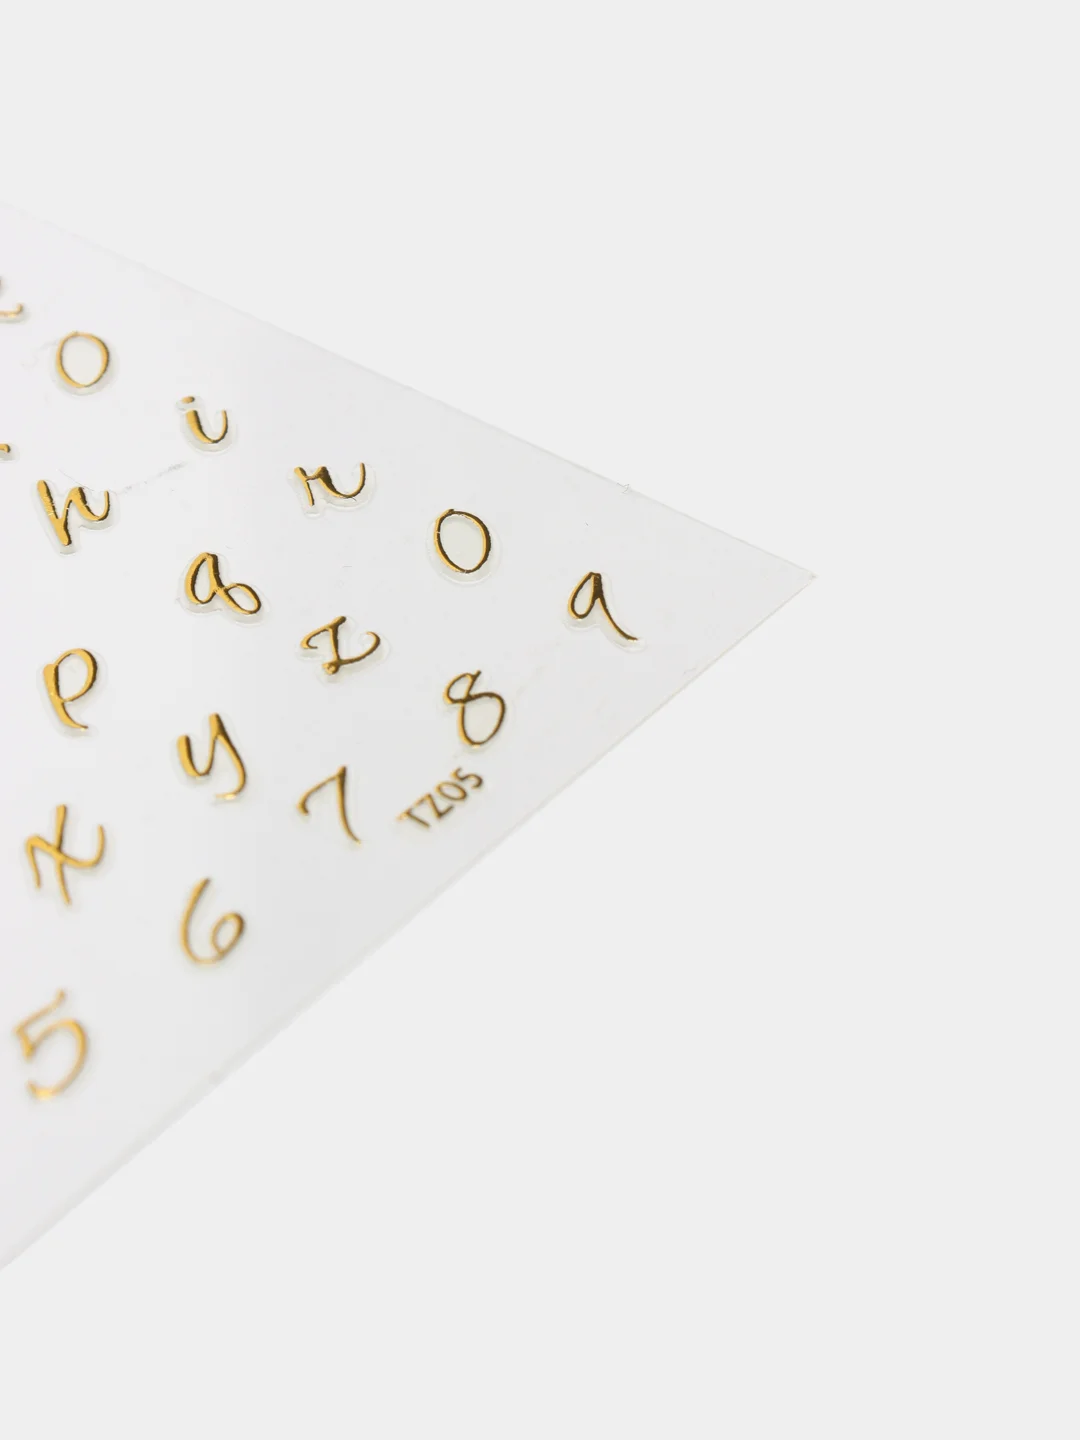 o
h i
p q r
x y z 0
5 6 7 8 9
TZ05